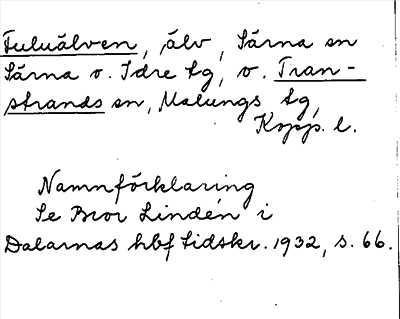 Fuluälven, älv, Särna sn
Särna o. Idre tg, o. Tran-
strands sn, Malungs tg,
Kopp. l.
Namnförklaring
Se Bror Lindén i
Dalarnas hbf tidskr. 1932, s. 66.